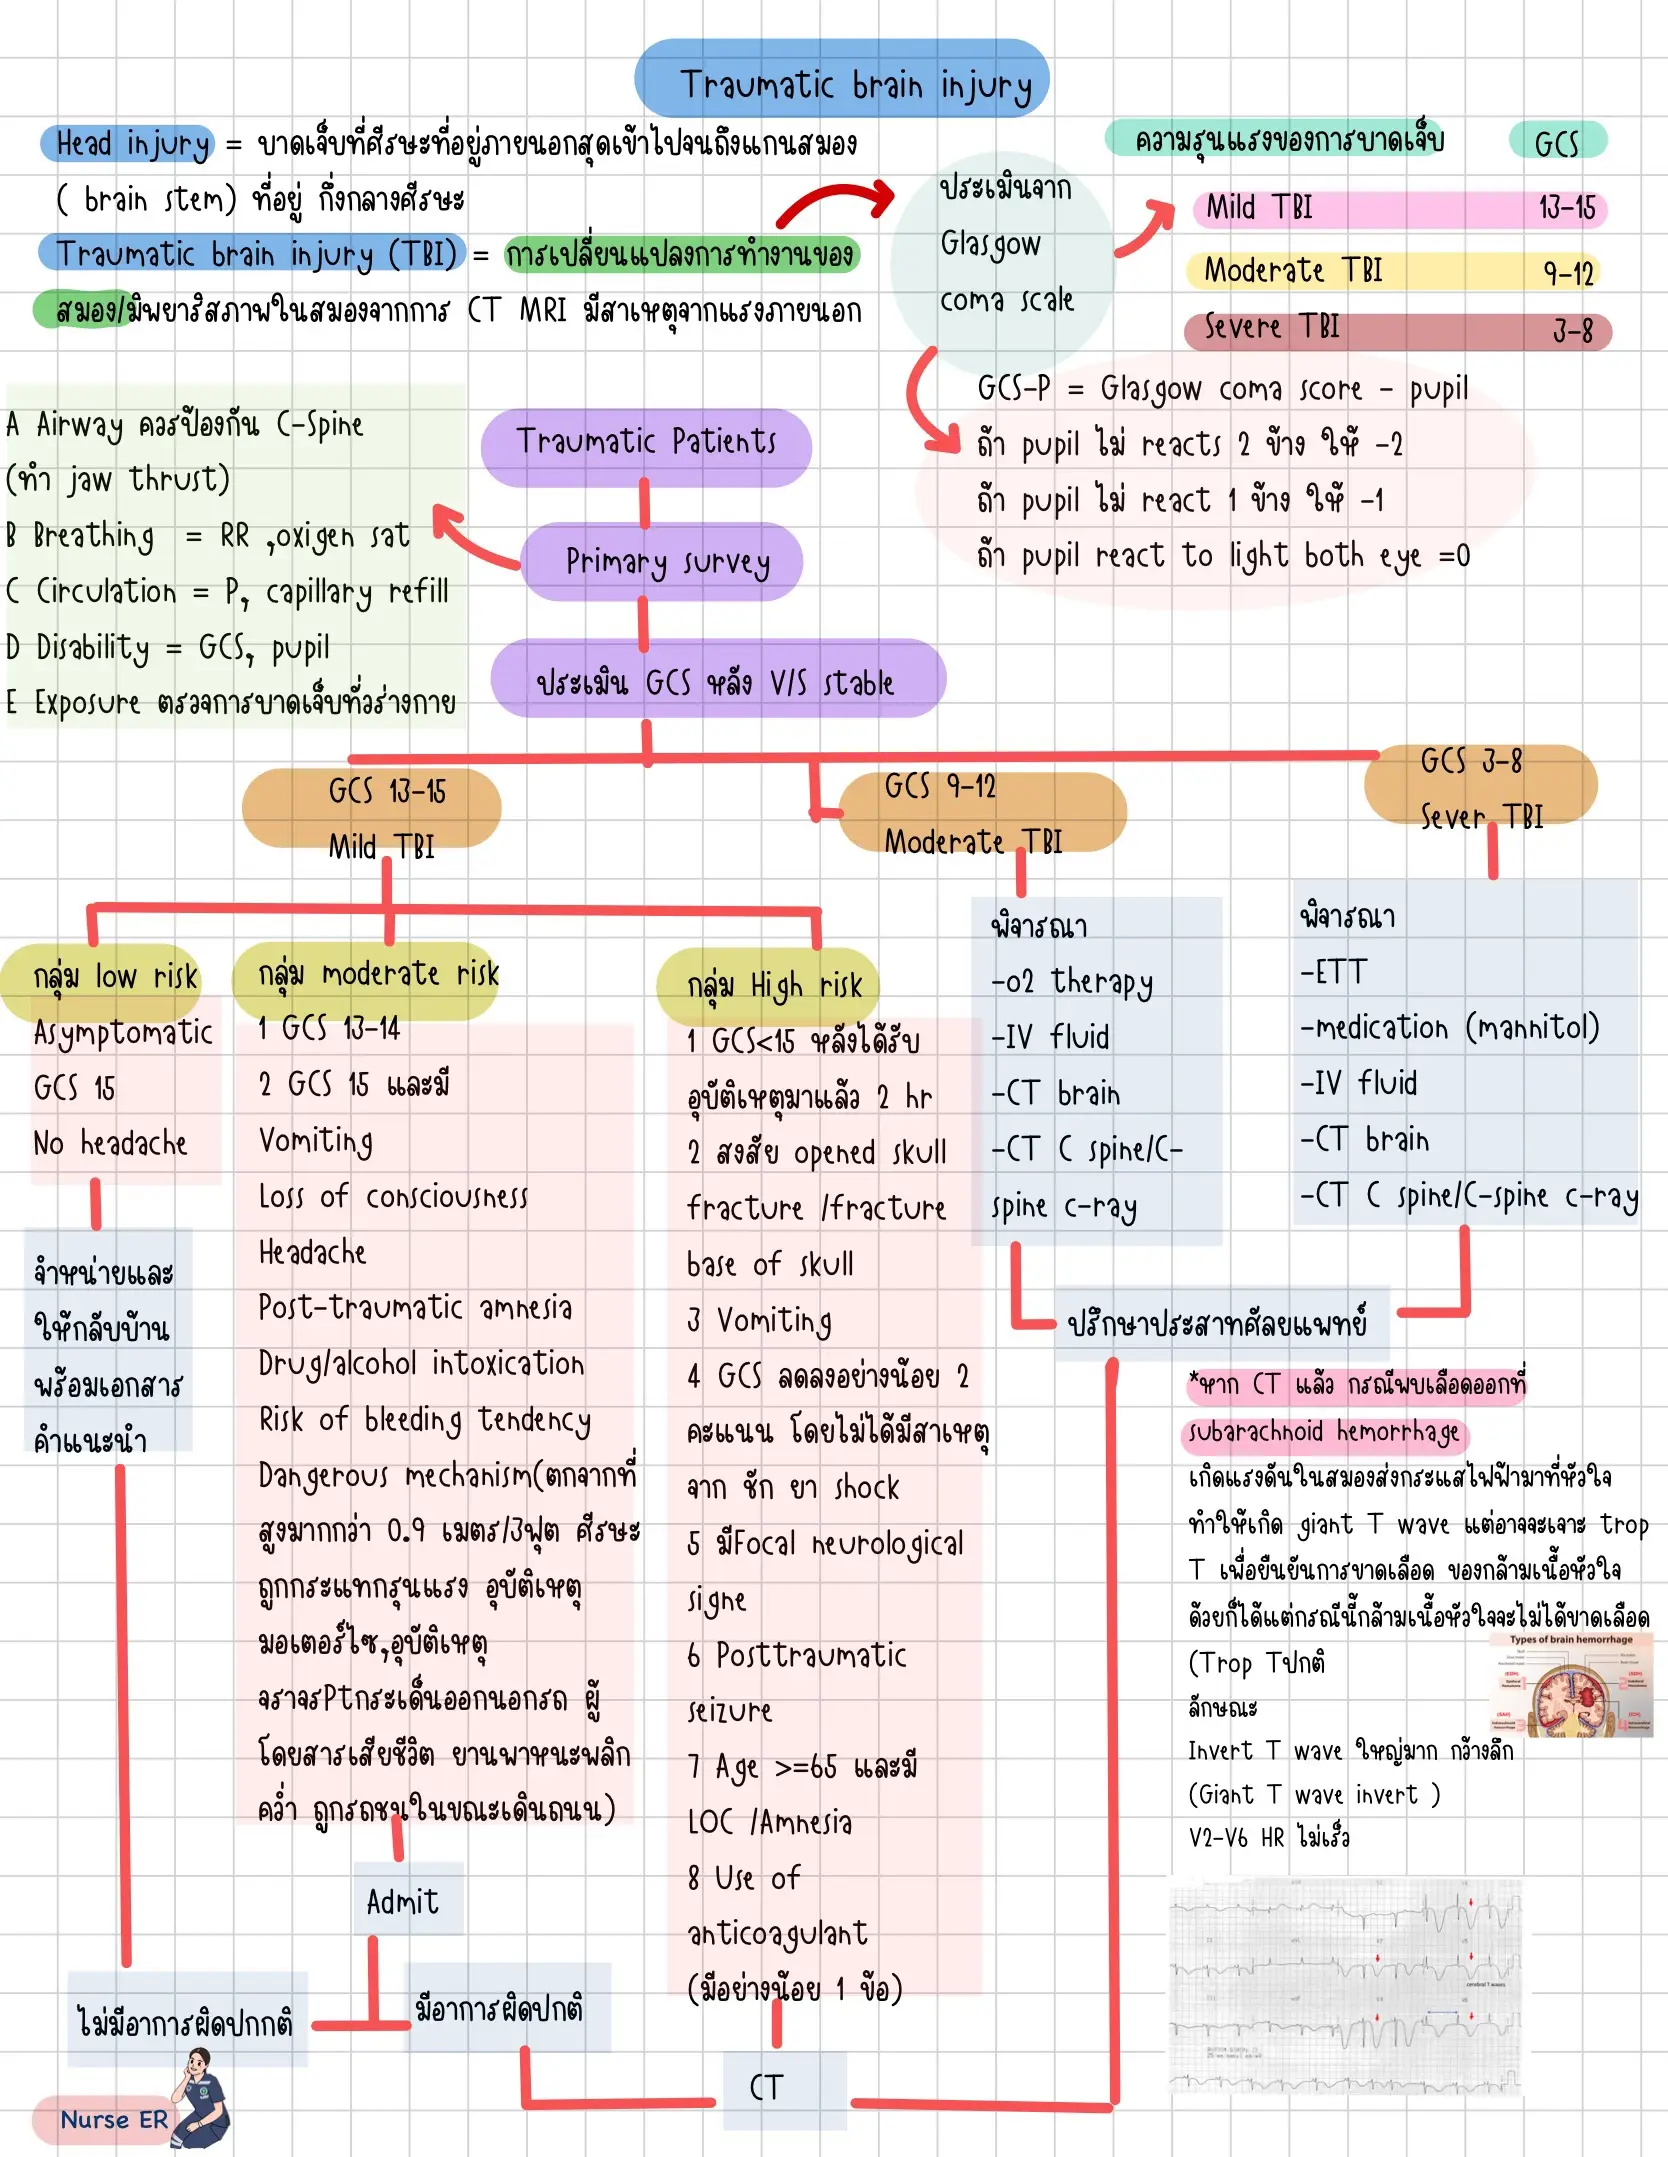 Traumatic brain injury
Head injury = บาดเจ็บที่ศีรษะที่อยู่ภายนอกสุดเข้าไปจนถึงแกนสมอง
( brain stem) ที่อยู่ กึ่งกลางศีรษะ
Traumatic brain injury (TBI) = การเปลี่ยนแปลงการทำงานของ
สมอง/มีพยาธิสภาพในสมองจากการ CT MRI มีสาเหตุจากแรงภายนอก
ประเมินจาก
Glasgow
coma scale
ความรุนแรงของการบาดเจ็บ GCS
Mild TBI 13-15
Moderate TBI 9-12
Severe TBI 3-8
GCS-P = Glasgow coma score - pupil
ถ้า pupil ไม่ reacts 2 ข้าง ให้ -2
ถ้า pupil ไม่ react 1 ข้าง ให้ -1
ถ้า pupil react to light both eye =0
A Airway ควรป้องกัน C-Spine
(ทำ jaw thrust)
B Breathing = RR ,oxigen sat
C Circulation = P, capillary refill
D Disability = GCS, pupil
E Exposure ตรวจการบาดเจ็บที่วร่างกาย
Traumatic Patients
Primary survey
ประเมิน GCS หลัง V/S stable
GCS 13-15
Mild TBI
GCS 9-12
Moderate TBI
GCS 3-8
Sever TBI
กลุ่ม low risk
Asymptomatic
GCS 15
No headache
จำหน่ายและ
ให้กลับบ้าน
พร้อมเอกสาร
คำแนะนำ
กลุ่ม moderate risk
1 GCS 13-14
2 GCS 15 และมี
Vomiting
Loss of consciousness
Headache
Post-traumatic amnesia
Drug/alcohol intoxication
Risk of bleeding tendency
Dangerous mechanism(ตกจากที่
สูงมากกว่า 0.9 เมตร/3ฟุต ศีรษะ
ถูกกระแทกรุนแรง อุบัติเหตุ
มอเตอร์ไซ,อุบัติเหตุ
จราจรPtกระเด็นออกนอกรถ ผู้
โดยสารเสียชีวิต ยานพาหนะพลิก
คว่ำ ถูกรถชนในขณะเดินถนน)
Admit
ไม่มีอาการผิดปกกติ
มีอาการผิดปกติ
กลุ่ม High risk
1 GCS<15 หลังได้รับ
อุบัติเหตุมาแล้ว 2 hr
2 สงสัย opened skull
fracture /fracture
base of skull
3 Vomiting
4 GCS ลดลงอย่างน้อย 2
คะแนน โดยไม่ได้มีสาเหตุ
จาก ชัก ยา shock
5 มีFocal neurological
signe
6 Posttraumatic
seizure
7 Age >=65 และมี
LOC /Amnesia
8 Use of
anticoagulant
(มีอย่างน้อย 1 ข้อ)
CT
พิจารณา
-o2 therapy
-IV fluid
-CT brain
-CT C spine/C-
spine c-ray
พิจารณา
-ETT
-medication (mannitol)
-IV fluid
-CT brain
-CT C spine/C-spine c-ray
ปรึกษาประสาทศัลยแพทย์
*หาก CT แล้ว กรณีพบเลือดออกที่
subarachnoid hemorrhage
เกิดแรงดันในสมองส่งกระแสไฟฟ้ามาที่หัวใจ
ทำให้เกิด giant T wave แต่อาจจะเจาะ trop
T เพื่อยืนยันการขาดเลือด ของกล้ามเนื้อหัวใจ
ด้วยก็ได้แต่กรณีนี้กล้ามเนื้อหัวใจจะไม่ได้ขาดเลือด
(Trop Tปกติ
ลักษณะ
Invert T wave ใหญ่มาก กว้างลึก
(Giant T wave invert )
V2-V6 HR ไม่เร็ว
Types of brain hemorrhage
1
2
3
4
cerebral T waves
Nurse ER